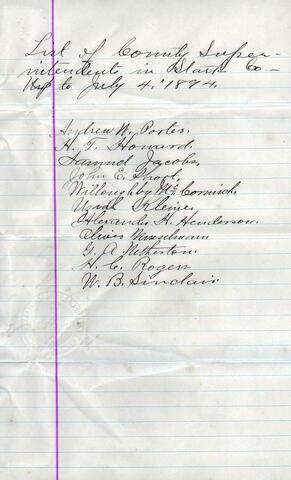 List of County Super-
intendents in Stark Co-
Up to July 4, 1894.
Andrew W. Porter.
H. T. Howard.
Samuel Jacobs.
John E. Short.
Willoughby McCormick.
Uriah Kleine.
Alexander H. Henderson.
Oliver Musselman.
G. A. Netherton.
H. C. Rogers
W. B. Sinclair.